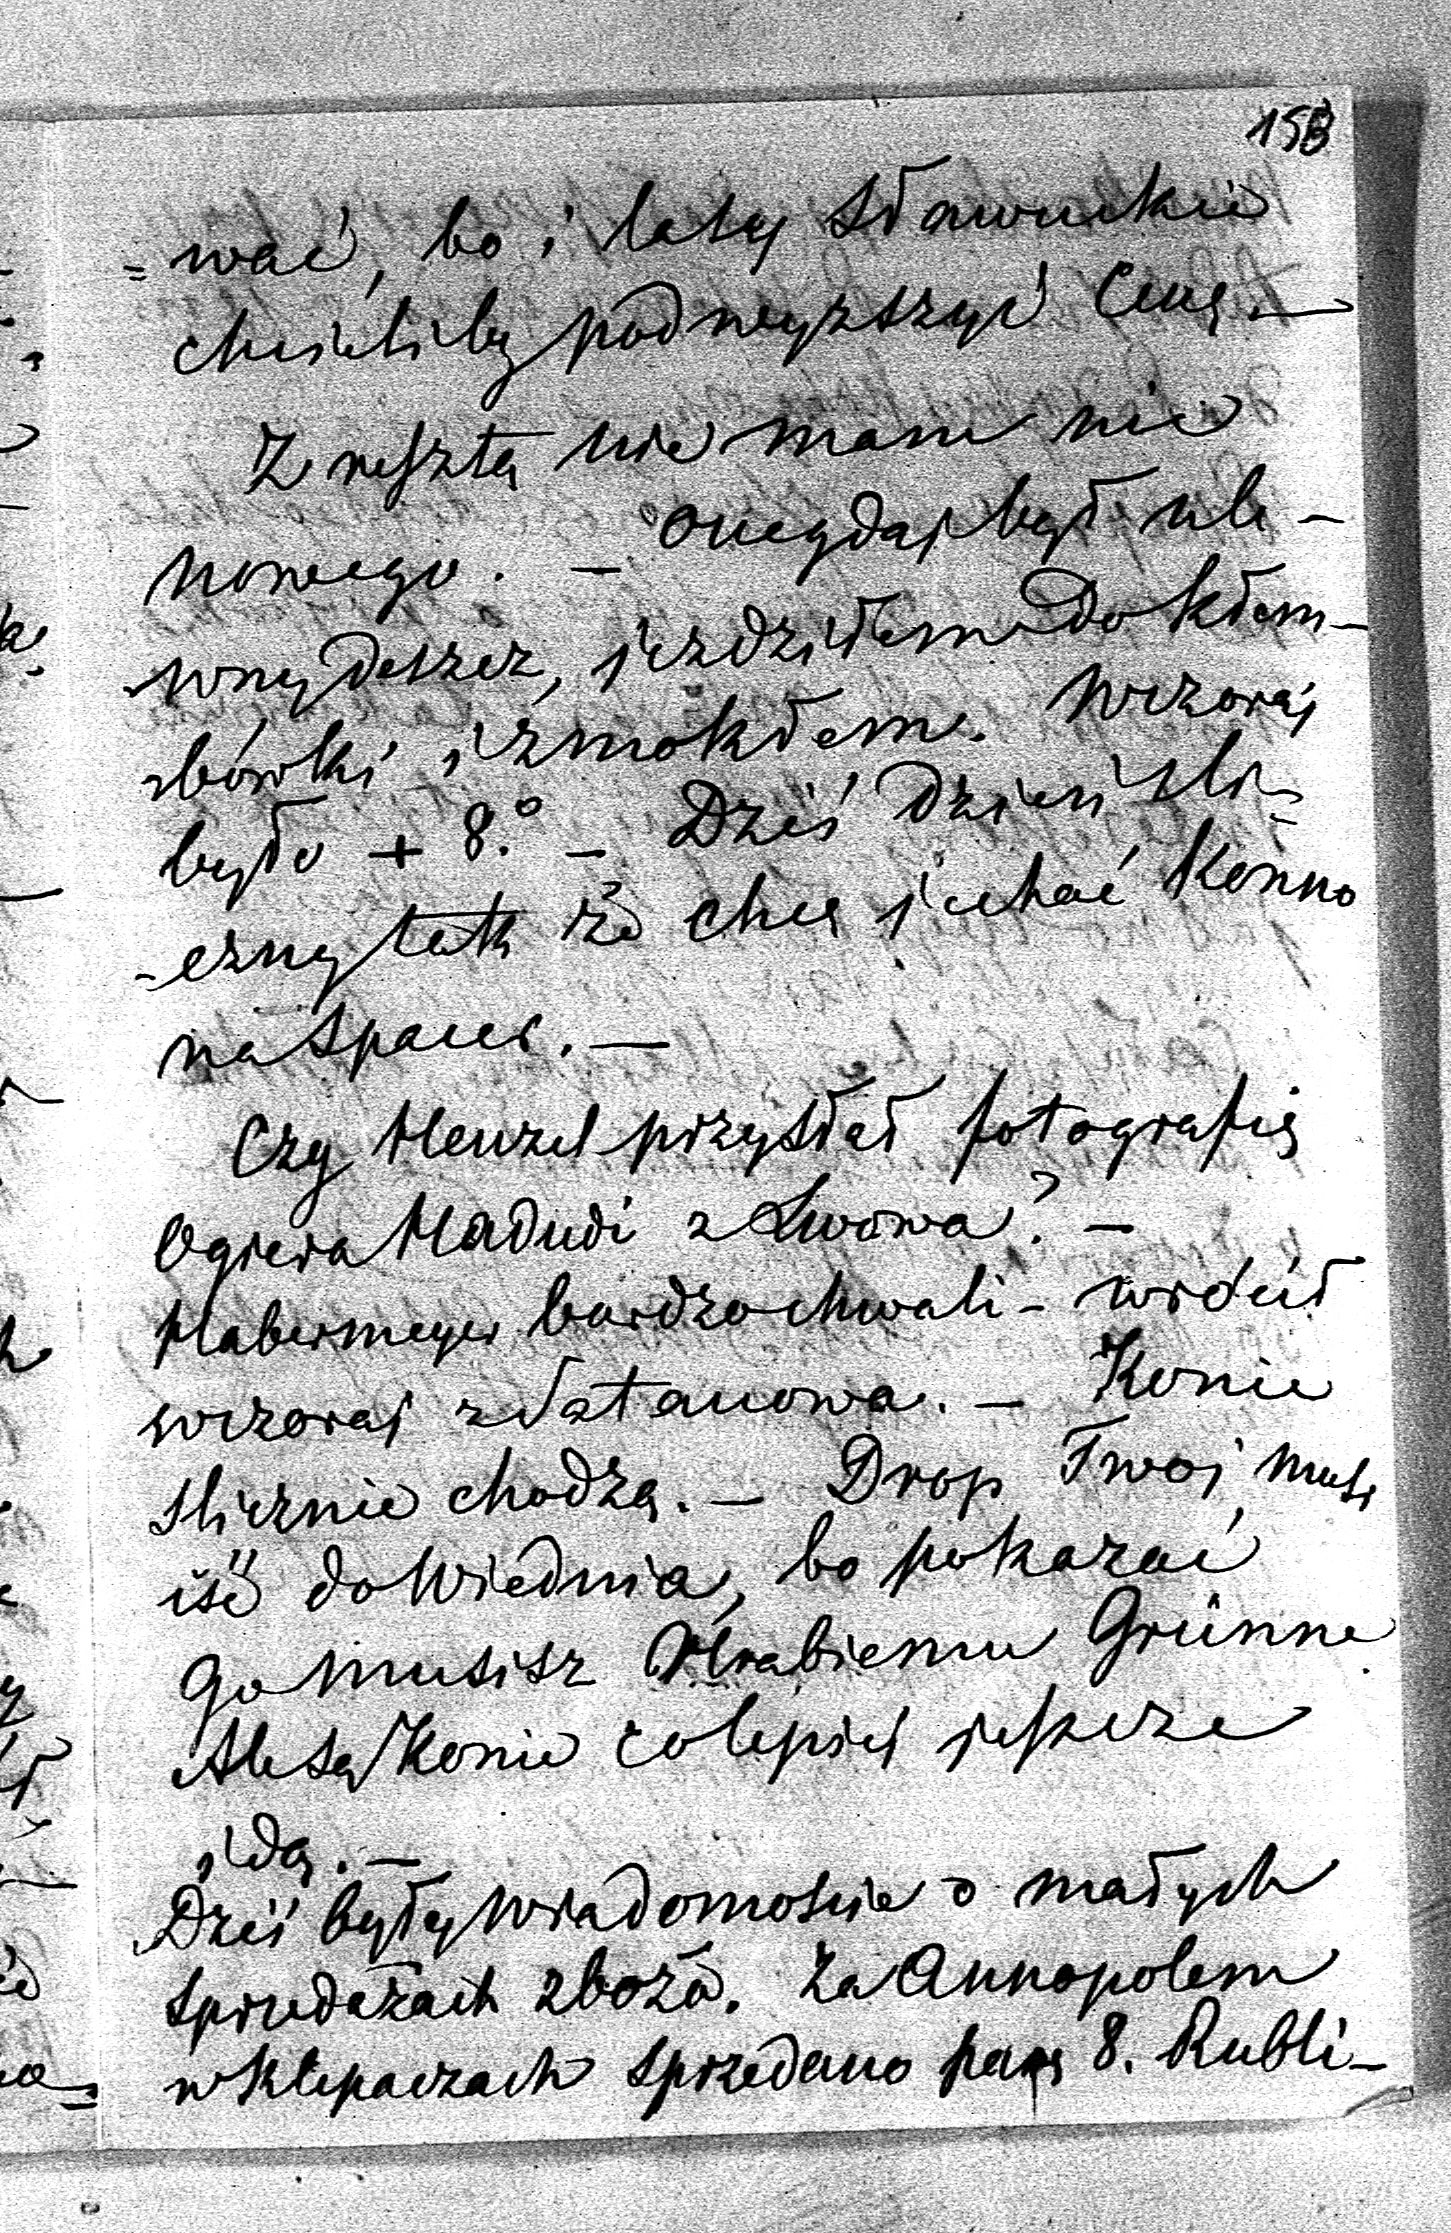 153
= wać, bo i lasy Sławuckie
chcieliby podwyższyć Cenę. —
Z resztą nie mam nic
nowego. — onegdaj był ule-
-wny deszcz, jezdziłem do Kłem-
-bówki i zmokłem. Wczoraj
było + 8.° — Dziś dzień sli=
-czny tak że chcę jechać Konno
na Spacer. —
Czy Henzel przysłał fotografię
Ogiera Hadudi z Lwowa? —
Habermeyer bardzo chwali — wrócił
wczoraj z Satanowa. — Konie
slicznie chodzą. — Drop Twoj musi
iść do Wiednia, bo pokazać
go musisz Hrabiemu Grünne
Ale są Konie co lepiej jeszcze
idą. —
Dziś były wiadomoscie o małych
sprzedażach zboża. Za Annopolem
w Klepaczach sprzedano parę 8. Rubli-